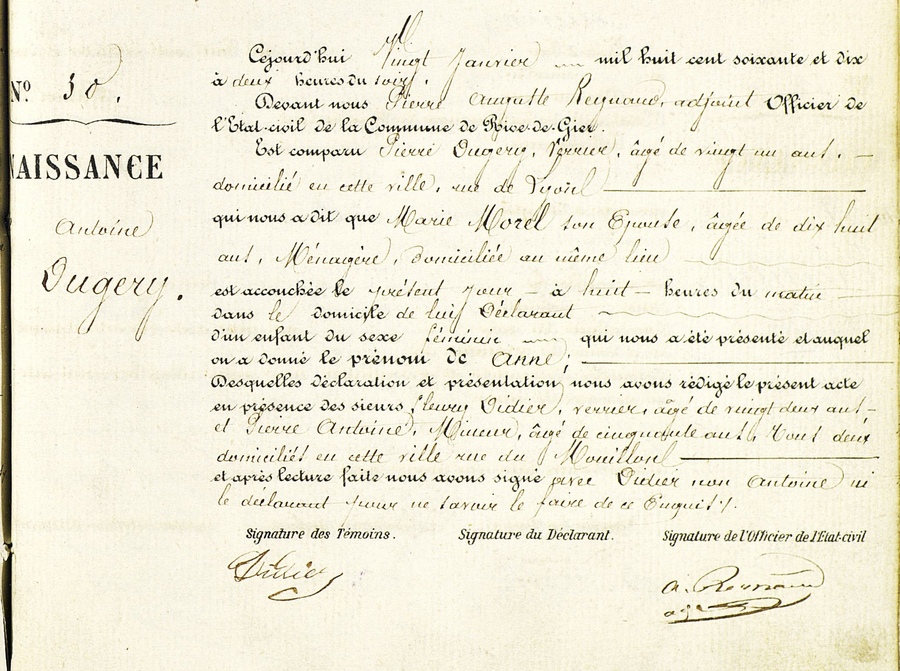 Nº 50.
NAISSANCE
Antoine
Dugery.
Cejourd'hui Vingt Janvier mil huit cent soixante et dix
à deux heures du soir.
Devant nous Pierre Auguste Reynaud, adjoint Officier de
l'Etat-civil de la Commune de Rive-de-Gier.
Est comparu Pierre Dugery, Verrier, âgé de vingt un ans, —
domicilié en cette ville, rue de Lyon
qui nous a dit que Marie Morel son Epouse, âgée de dix huit
ans, Ménagère, domiciliée au même lieu
est accouchée le présent jour - à huit - heures du matin
dans le domicile de lui Déclarant
d'un enfant du sexe féminin qui nous a été présenté et auquel
on a donné le prénom de Anne;
Desquelles déclaration et présentation, nous avons rédigé le présent acte
en présence des sieurs fleury Didier, verrier, âgé de vingt deux ans -
et Pierre Antoine, Mineur, âgé de cinquante ans, tous deux
domiciliés en cette ville rue du Mouillon
et après lecture faite nous avons signé avec Didier non Antoine ni
le déclarant pour ne savoir le faire de ce Enquis /.
Signature des Témoins. Signature du Déclarant. Signature de l'Officier de l'Etat-civil
Didier
a. Reynaud
adj